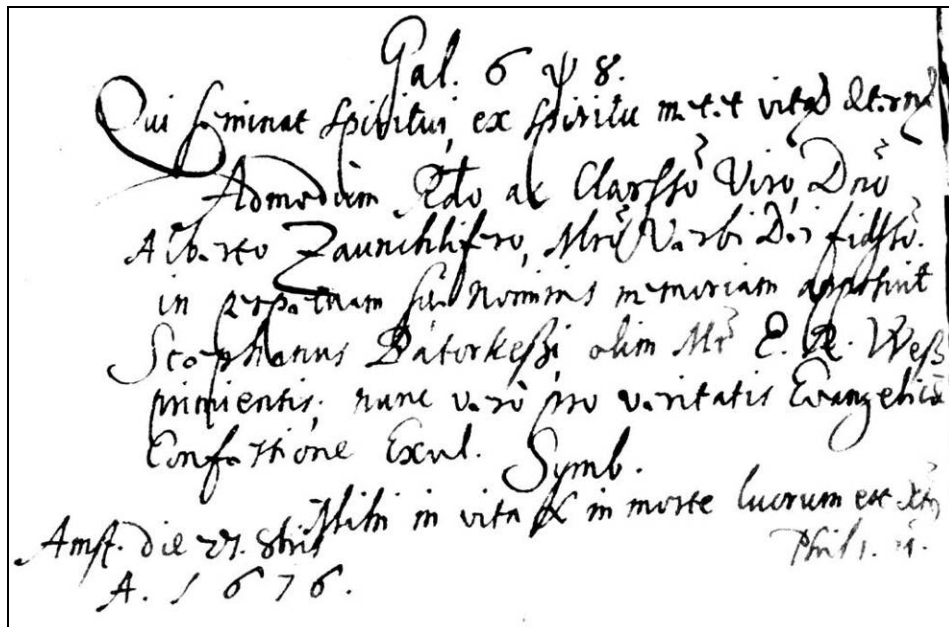 Gal. 6 ℣ 8.
Qui seminat spiritui, ex spiritu metet vitã æternã
Admodum Rdo ac Clarssõ Viro, Dnõ
Alberto Zaunschlifero, Mrõ Verbi Dei fidssõ.
in perpetuam sui nominis memoriam apposuit
Stephanus Bátorkeßi, olim Mr E. R. Weß
primiensis; nunc verò pro veritatis Evangelicæ
Confessione Exul.
Symb.
Mihi in vita & in morte lucrum est Xtus
Phil 1.
Amst. die 27. 8bris
A. 1676.